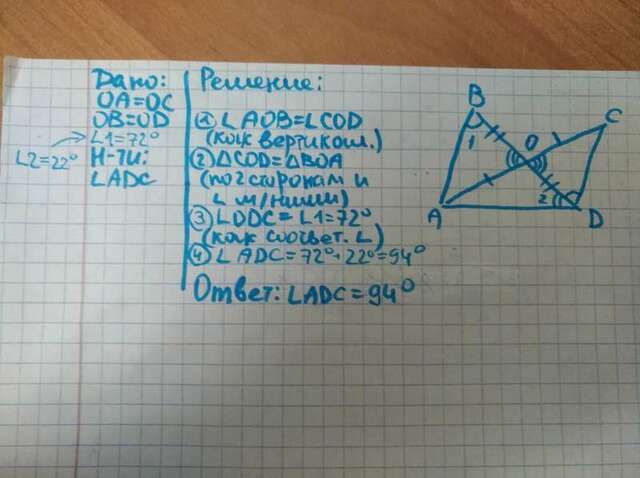 Дано:
OA=OC
OB=OD
∠1=72°
∠2=22°
Н-ти:
∠ADC
Решение:
① ∠AOB=∠COD
(как вертикал.)
② △COD=△BOA
(по 2 сторонам и
∠ м/ними)
③ ∠ODC=∠1=72°
(как соответ. ∠)
④ ∠ADC=72°+22°=94°
Ответ: ∠ADC=94°
B
C
O
1
2
A
D